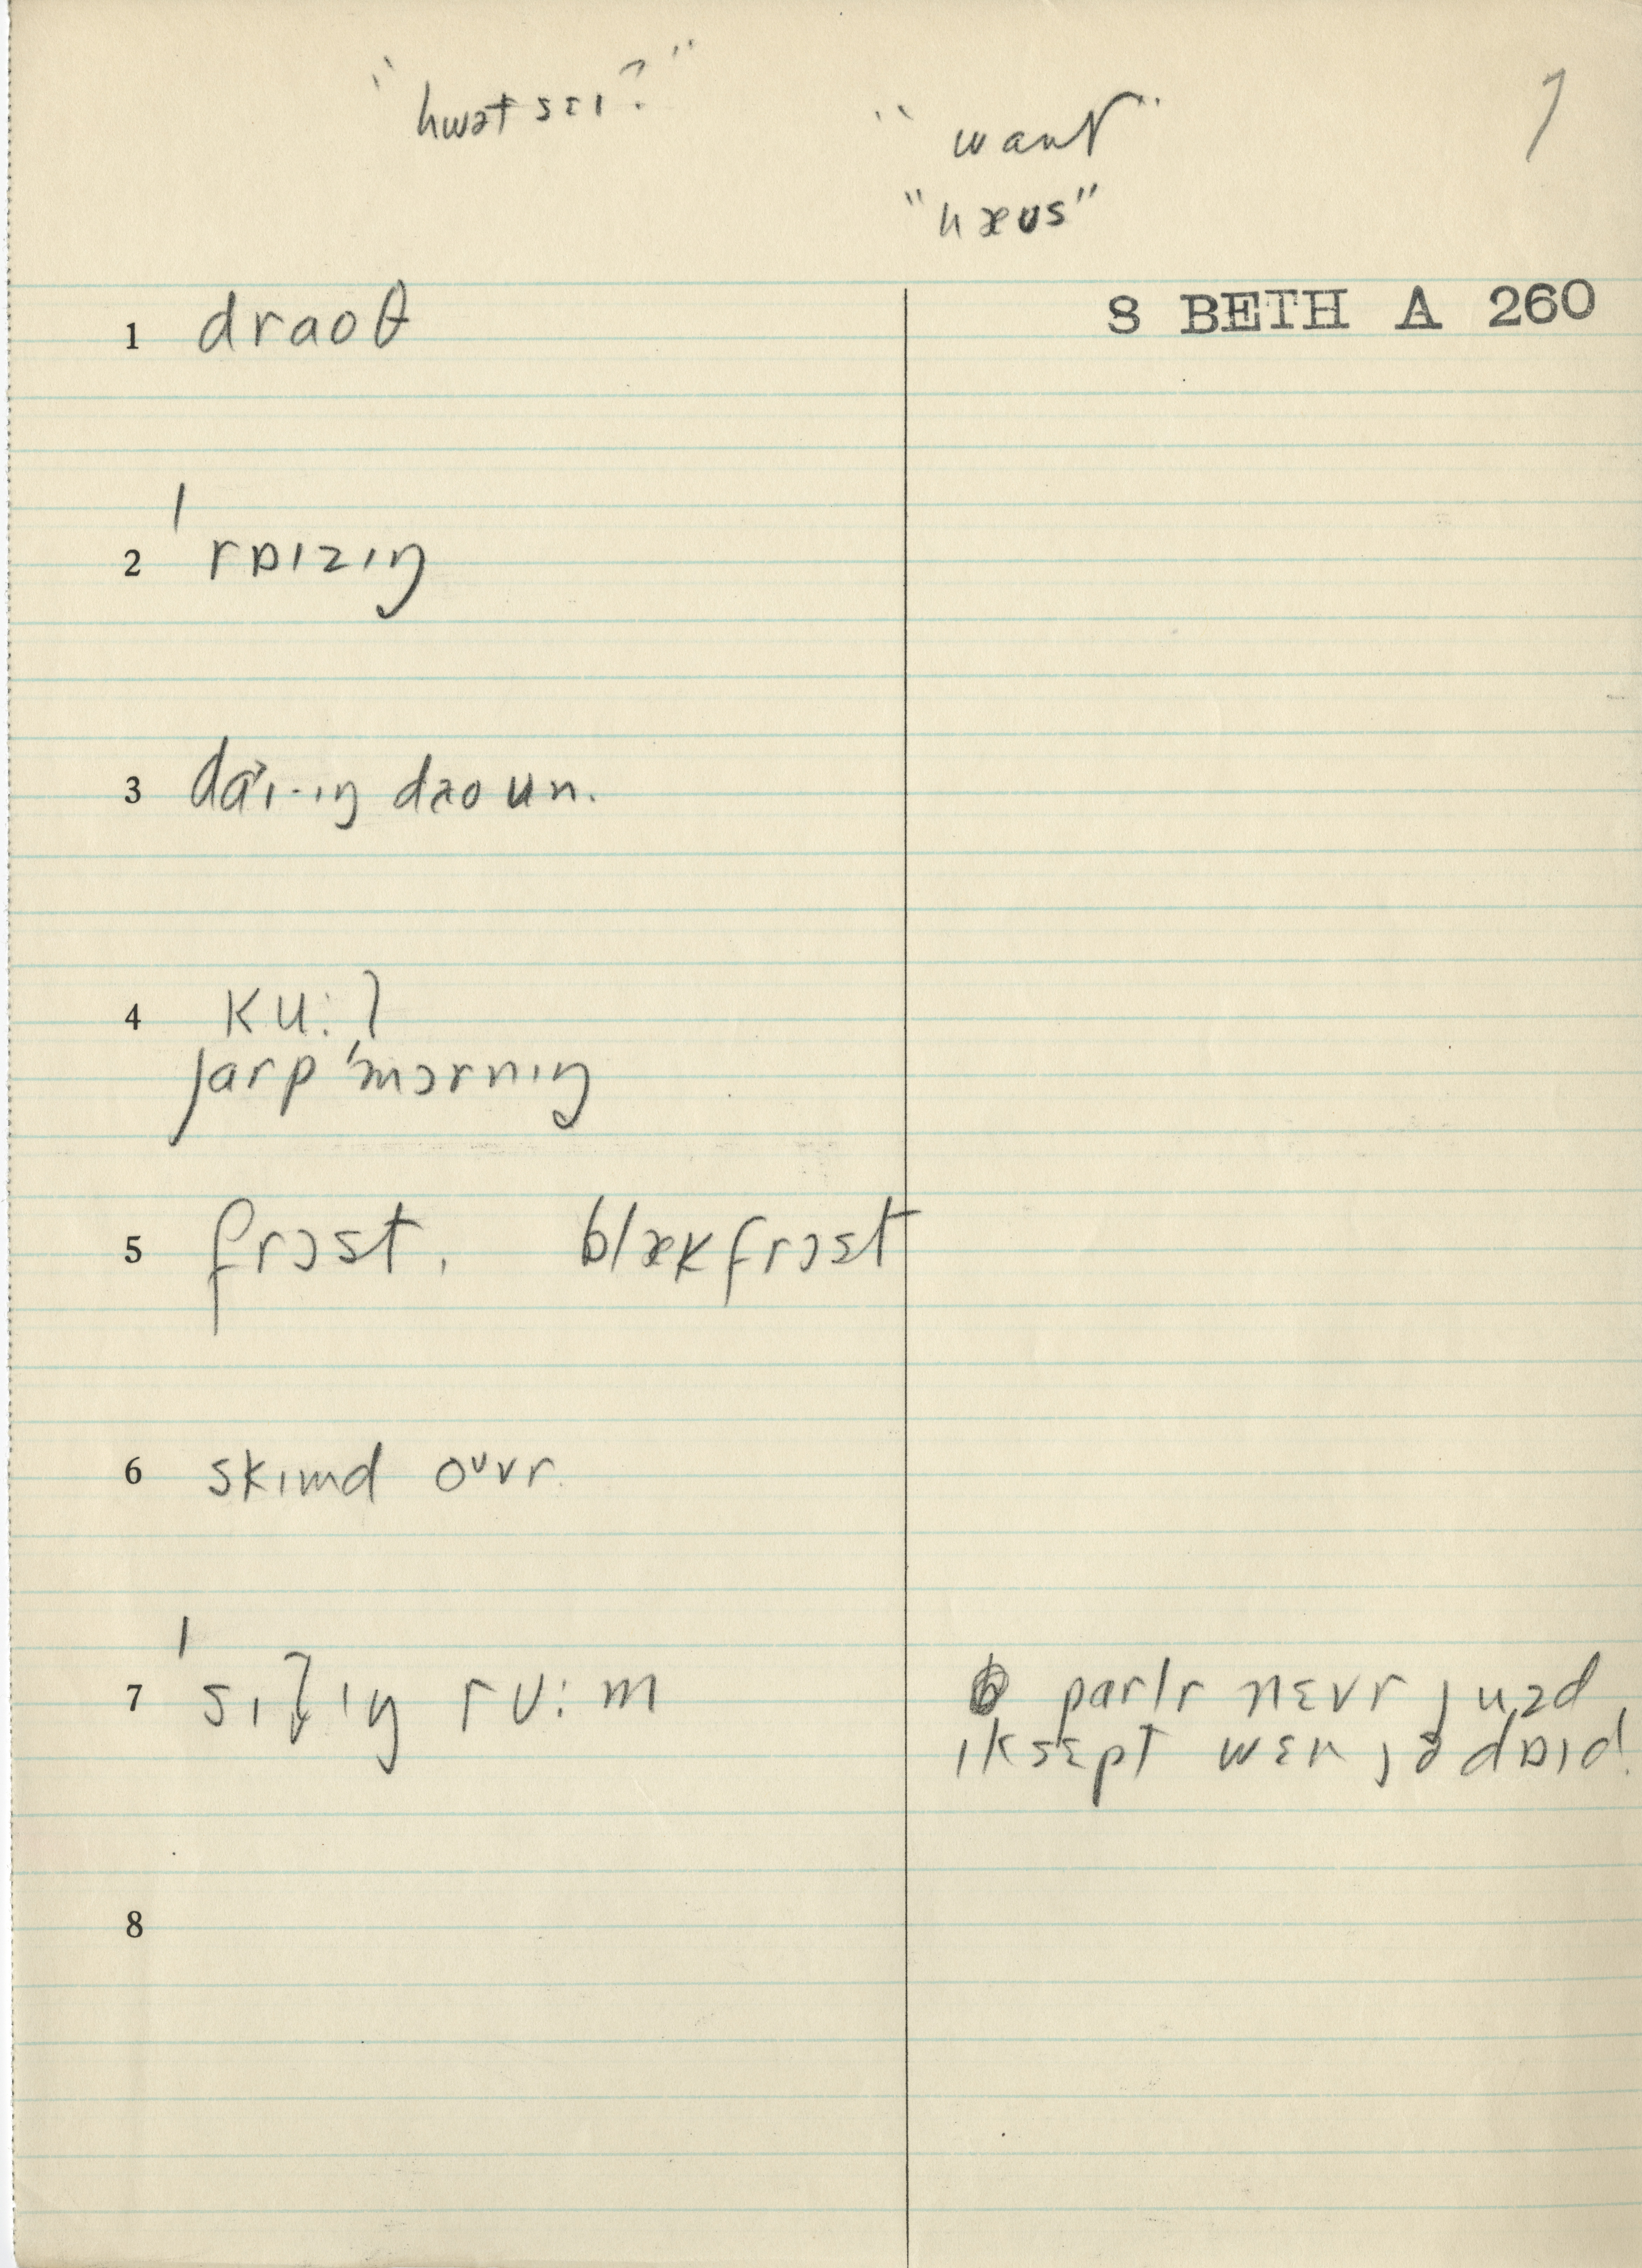 "hwət sɛɪ?"
"want"
"hæʊs"
7
8 BETH A 260
1 draoθ
2 ˈrɒɪzɪŋ
3 daɪ·ɪŋ daoun.
4 ku:l
ʃarp ˈmɔrnɪŋ
5 frɔst, blækfrɔst
6 skɪmd oʊvr.
7 ˈsɪtɪŋ rʊ:m
parlr nɛvr juzd
ɪksɛpt wɛn jə dɒɪd!
8